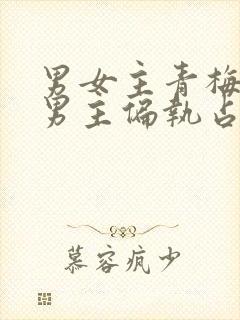 男女主青梅
男主偏执占
慕容疯少